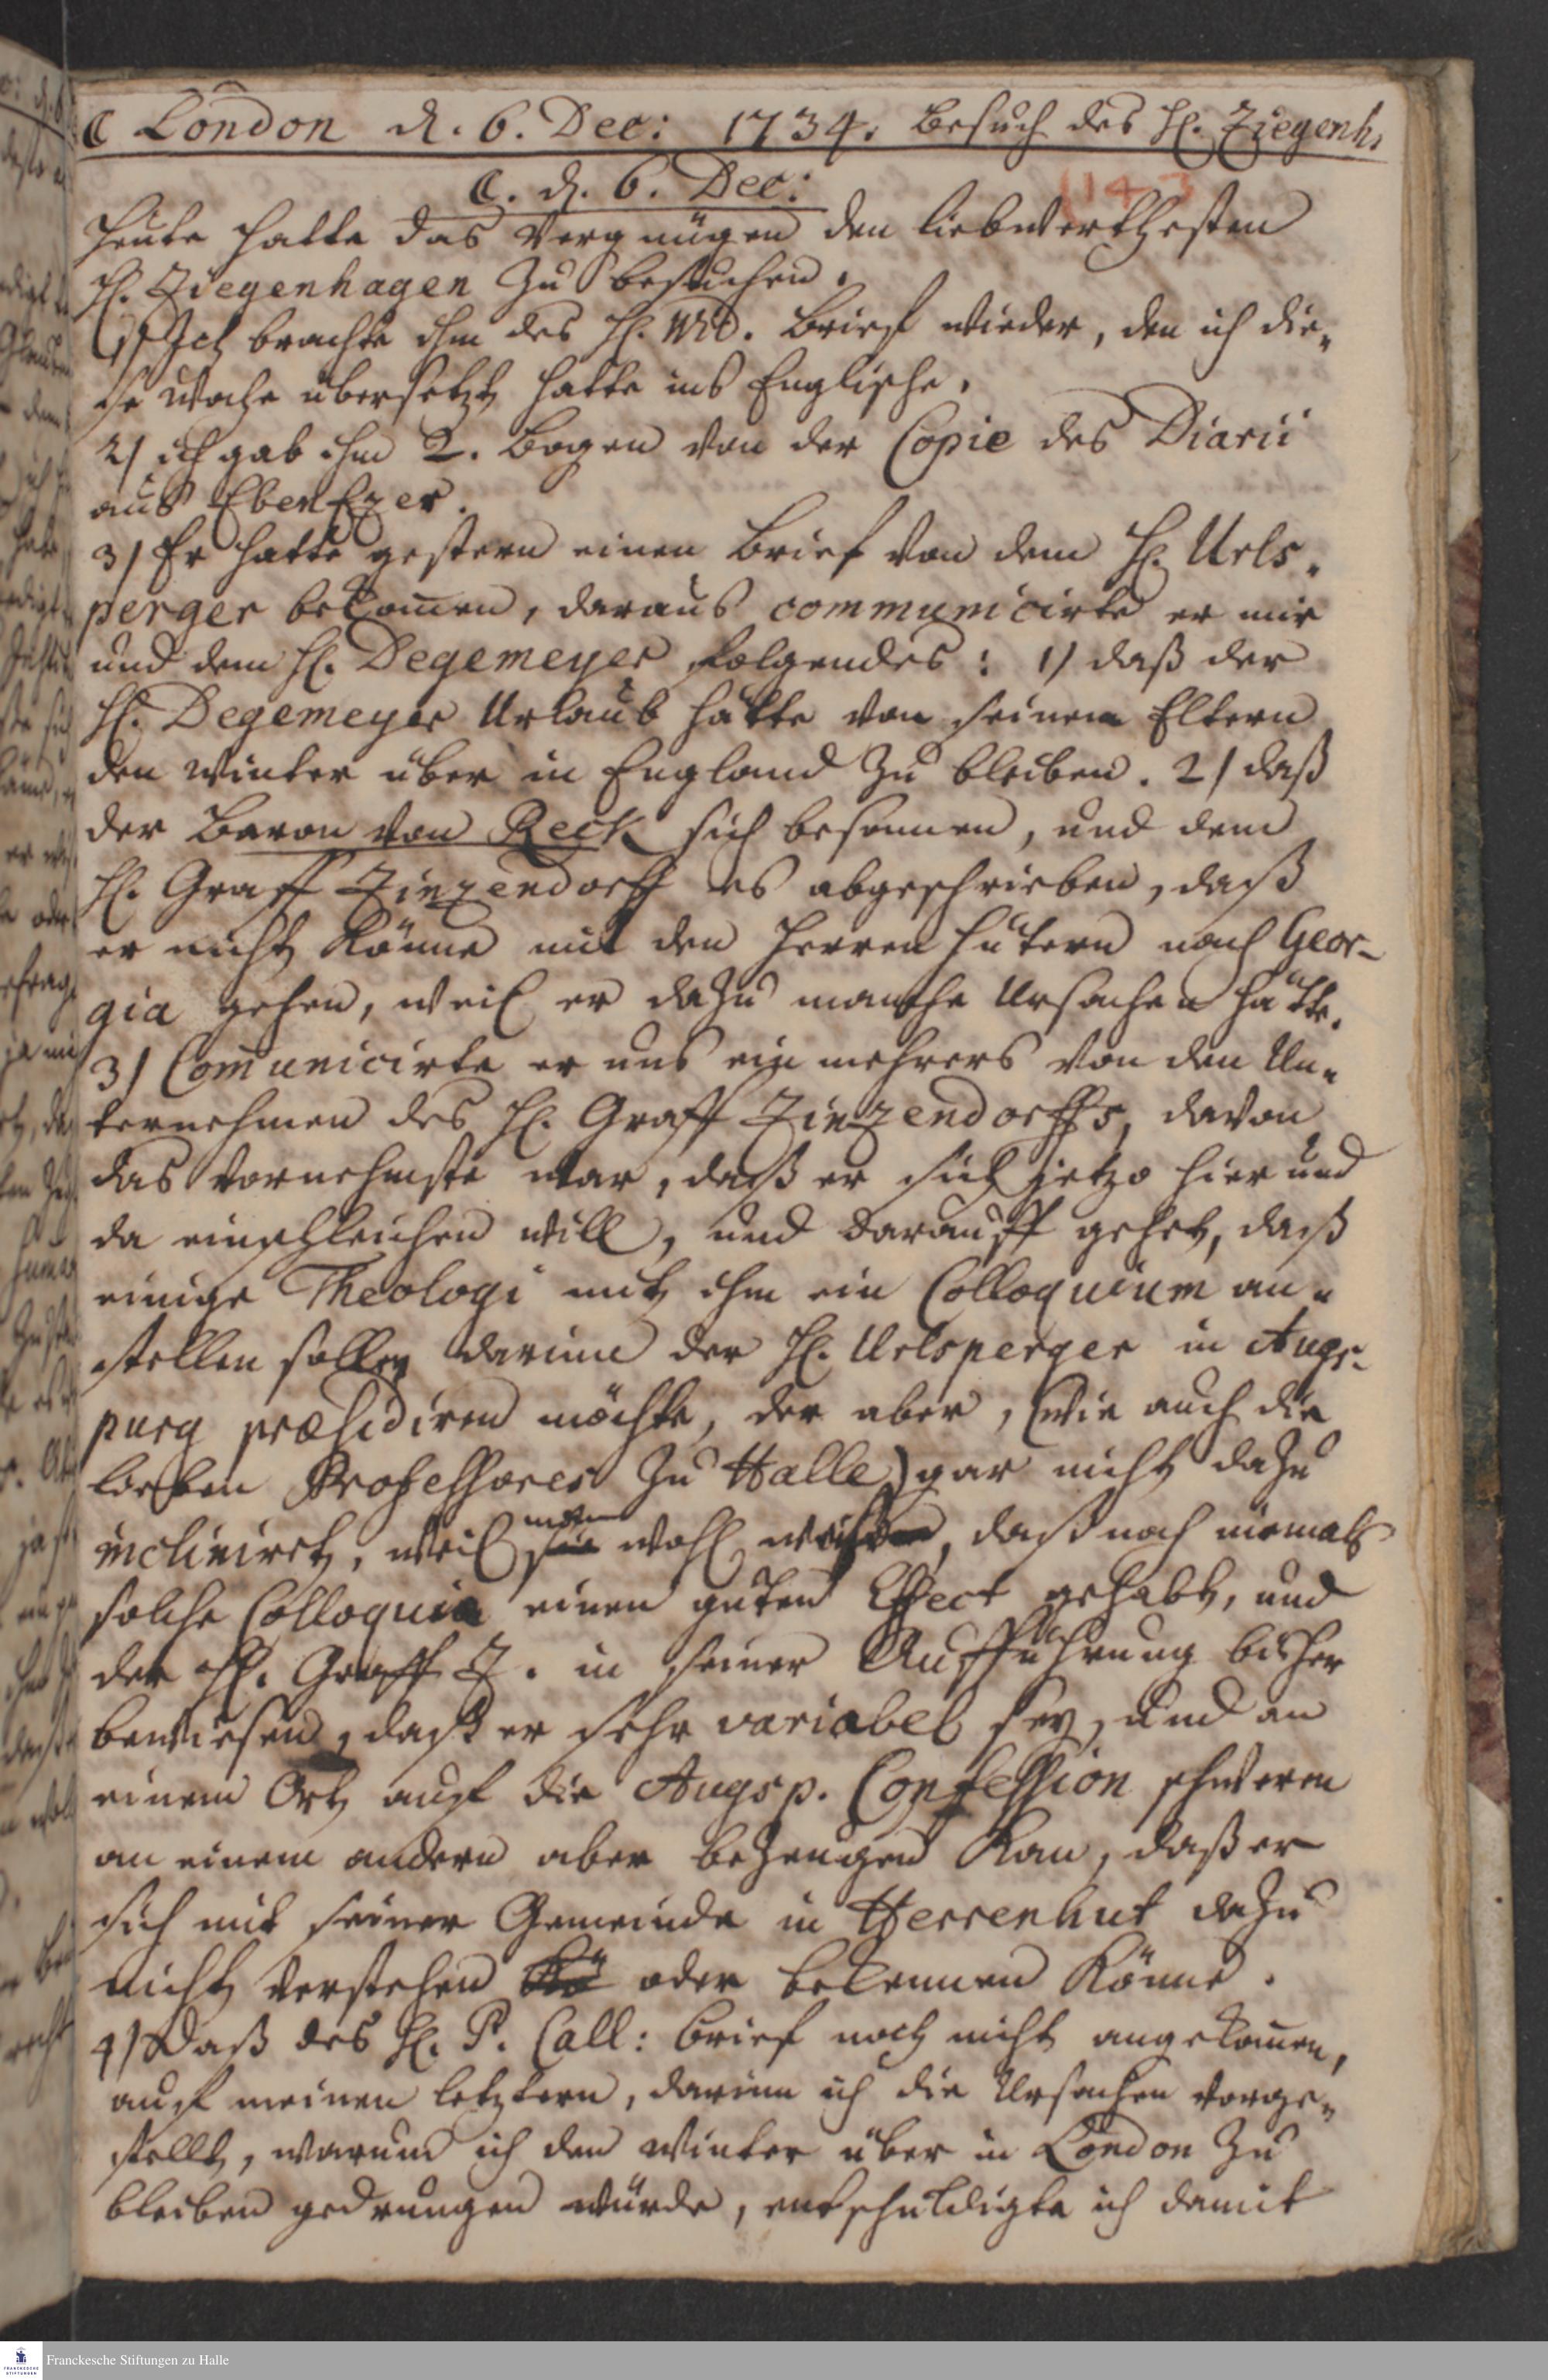 ☾ London d. 6. Dec: 1734. Besuch des H. Ziegenh.
☾. d. 6. Dec:
Heute hatte das Vergnügen den liebwerthesten
H. Ziegenhagen zu besuchen.
1) Ich brachte ihm des H. Brief wieder, den ich die„
se Woche übersetzt hatte ins Englische.
2) ich gab ihm 2. Bogen von der Copie des Diarii
aus EbenEzer.
3) Er hatte gestern einen Brief von dem H. Urls„
perger bekom̄en, daraus communicirte er mir
und dem H. Degemeyer folgendes: 1) daß der
H. Degemeyer Urlaub hätte von seinen Eltern
den Winter über in England zu bleiben. 2) daß
der Baron von Reck sich besonnen, und dem
H. Graff Zinzendorff es abgeschrieben, daß
er nicht könne mit den Herren Hutern nach Geor-
gia gehen, weil er dazu manche Ursachen hätte.
3) Com̄unicirte er uns ein mehrers von den Un„
ternehmen des H. Graff Zinzendorffs, davon
das vornehmste war, daß er sich jetzo hier und
da einschleichen will, und darauff gehet, daß
einige Theologi mit ihm ein Colloquium an„
stellen sollen darinn der H. Urlsperger in Augs-
purg præsidiren möchte, der aber, (wie auch die
lieben Professores zu Halle) gar nicht dazu
incliniret, weil man wohl, daß noch niemals
solche Colloquia einen guten Effect gehabt, und
der H. Graff Z. in seiner Aufführung bisher
bewiesen, daß er sehr variabel sey, und an
einem Ort auf die Augsp. Confession schweren
an einem andern aber bezeugen kan, daß er
sich mit seiner Gemeinde in Herrenhut dazu
nicht verstehen oder bekennen könne.
4) Daß des H. P. Call: Brief noch nicht angekom̄en,
auf meinen letztern, darinn ich die Ursachen vorge„
stellt, warum ich den Winter über in London zu
bleiben gedrungen würde, entschuldigte ich damit
Franckesche Stiftungen zu Halle